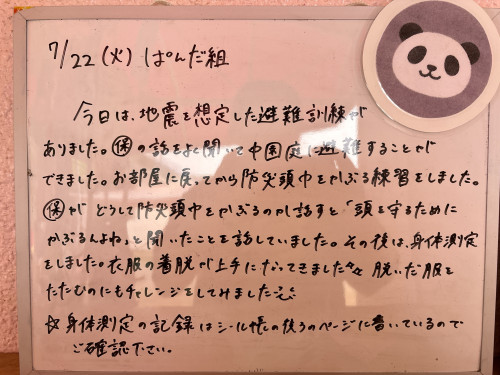 7/22(火) ぱんだ組
今日は、地震を想定した避難訓練が
ありました。㋭の話をよく聞いて中園庭に避難することが
できました。お部屋に戻ってから防災頭巾をかぶる練習をしました。
が どうして防災頭巾をかぶるのか話すと「頭を守るために
かぶるんよね」と聞いたことを話していました。その後は、身体測定
をしました。衣服の着脱が上手になってきました 脱いだ服を
たたむのにもチャレンジをしてみました
☆身体測定の記録はシール帳の後ろのページに書いているので
ご確認下さい。